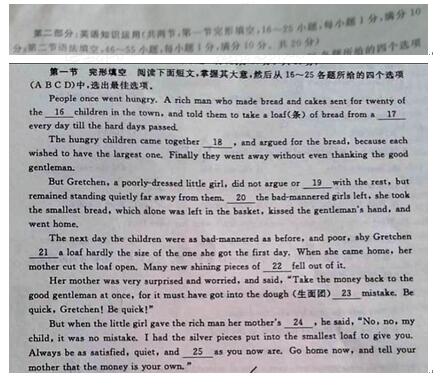 第二部分:英语知识运用(共两节,第一节完形填空,16~25 小题,每小题 1 分,满分 10
分;第二节语法填空,46~55 小题,每小题 1 分,满分 10 分。共 20 分)
各题所给的四个选项
第一节 完形填空 阅读下面短文,掌握其大意,然后从 16~25 各题所给的四个选项
(A B C D)中,选出最佳选项。
People once went hungry. A rich man who made bread and cakes sent for twenty of
the 16 children in the town, and told them to take a loaf(条) of bread from a 17
every day till the hard days passed.
The hungry children came together 18 , and argued for the bread, because each
wished to have the largest one. Finally they went away without even thanking the good
gentleman.
But Gretchen, a poorly-dressed little girl, did not argue or 19 with the rest, but
remained standing quietly far away from them. 20 the bad-mannered girls left, she took
the smallest bread, which alone was left in the basket, kissed the gentleman's hand, and
went home.
The next day the children were as bad-mannered as before, and poor, shy Gretchen
21 a loaf hardly the size of the one she got the first day. When she came home, her
mother cut the loaf open. Many new shining pieces of 22 fell out of it.
Her mother was very surprised and worried, and said, "Take the money back to the
good gentleman at once, for it must have got into the dough (生面团) 23 mistake. Be
quick, Gretchen! Be quick!"
But when the little girl gave the rich man her mother's 24 , he said, "No, no, my
child, it was no mistake. I had the silver pieces put into the smallest loaf to give you.
Always be as satisfied, quiet, and 25 as you now are. Go home now, and tell your
mother that the money is your own."